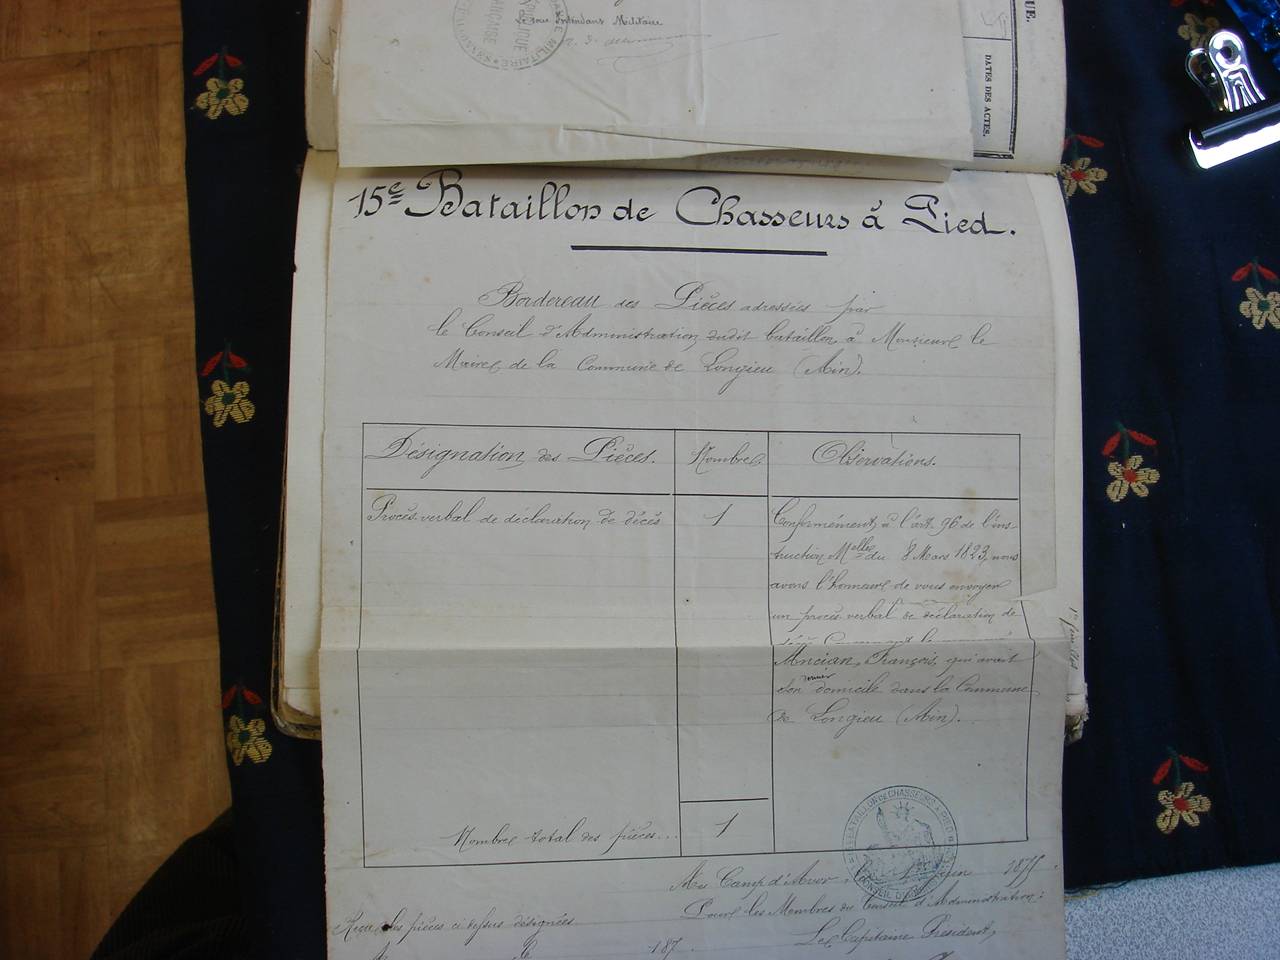 Le sous Intendant Militaire
DATES DES ACTES.
15e Bataillon de Chasseurs à Pied.
Bordereau des Pièces adressées par
le Conseil d'Administration dudit bataillon à Monsieur le
Maire de la Commune de Longieu (Ain).
Désignation des Pièces. Nombre Observations.
Procès verbal de déclaration de décès 1 Conformément à l'art. 96 de l'ins-
truction Melle du 8 Mars 1823, nous
avons l'honneur de vous envoyer
un procès verbal de déclaration de
décès
Ancian, François, qui avait
son dernier domicile dans la Commune
de Longieu (Ain).
Nombre total des pièces... 1
BATAILLON DE CHASSEURS A PIED
CONSEIL D'
Au Camp d'Avor, le Juin 1875
Pour les Membres du Conseil d'Administration:
Reçu les pièces ci dessus désignées
Le Capitaine Président,
le 187 .